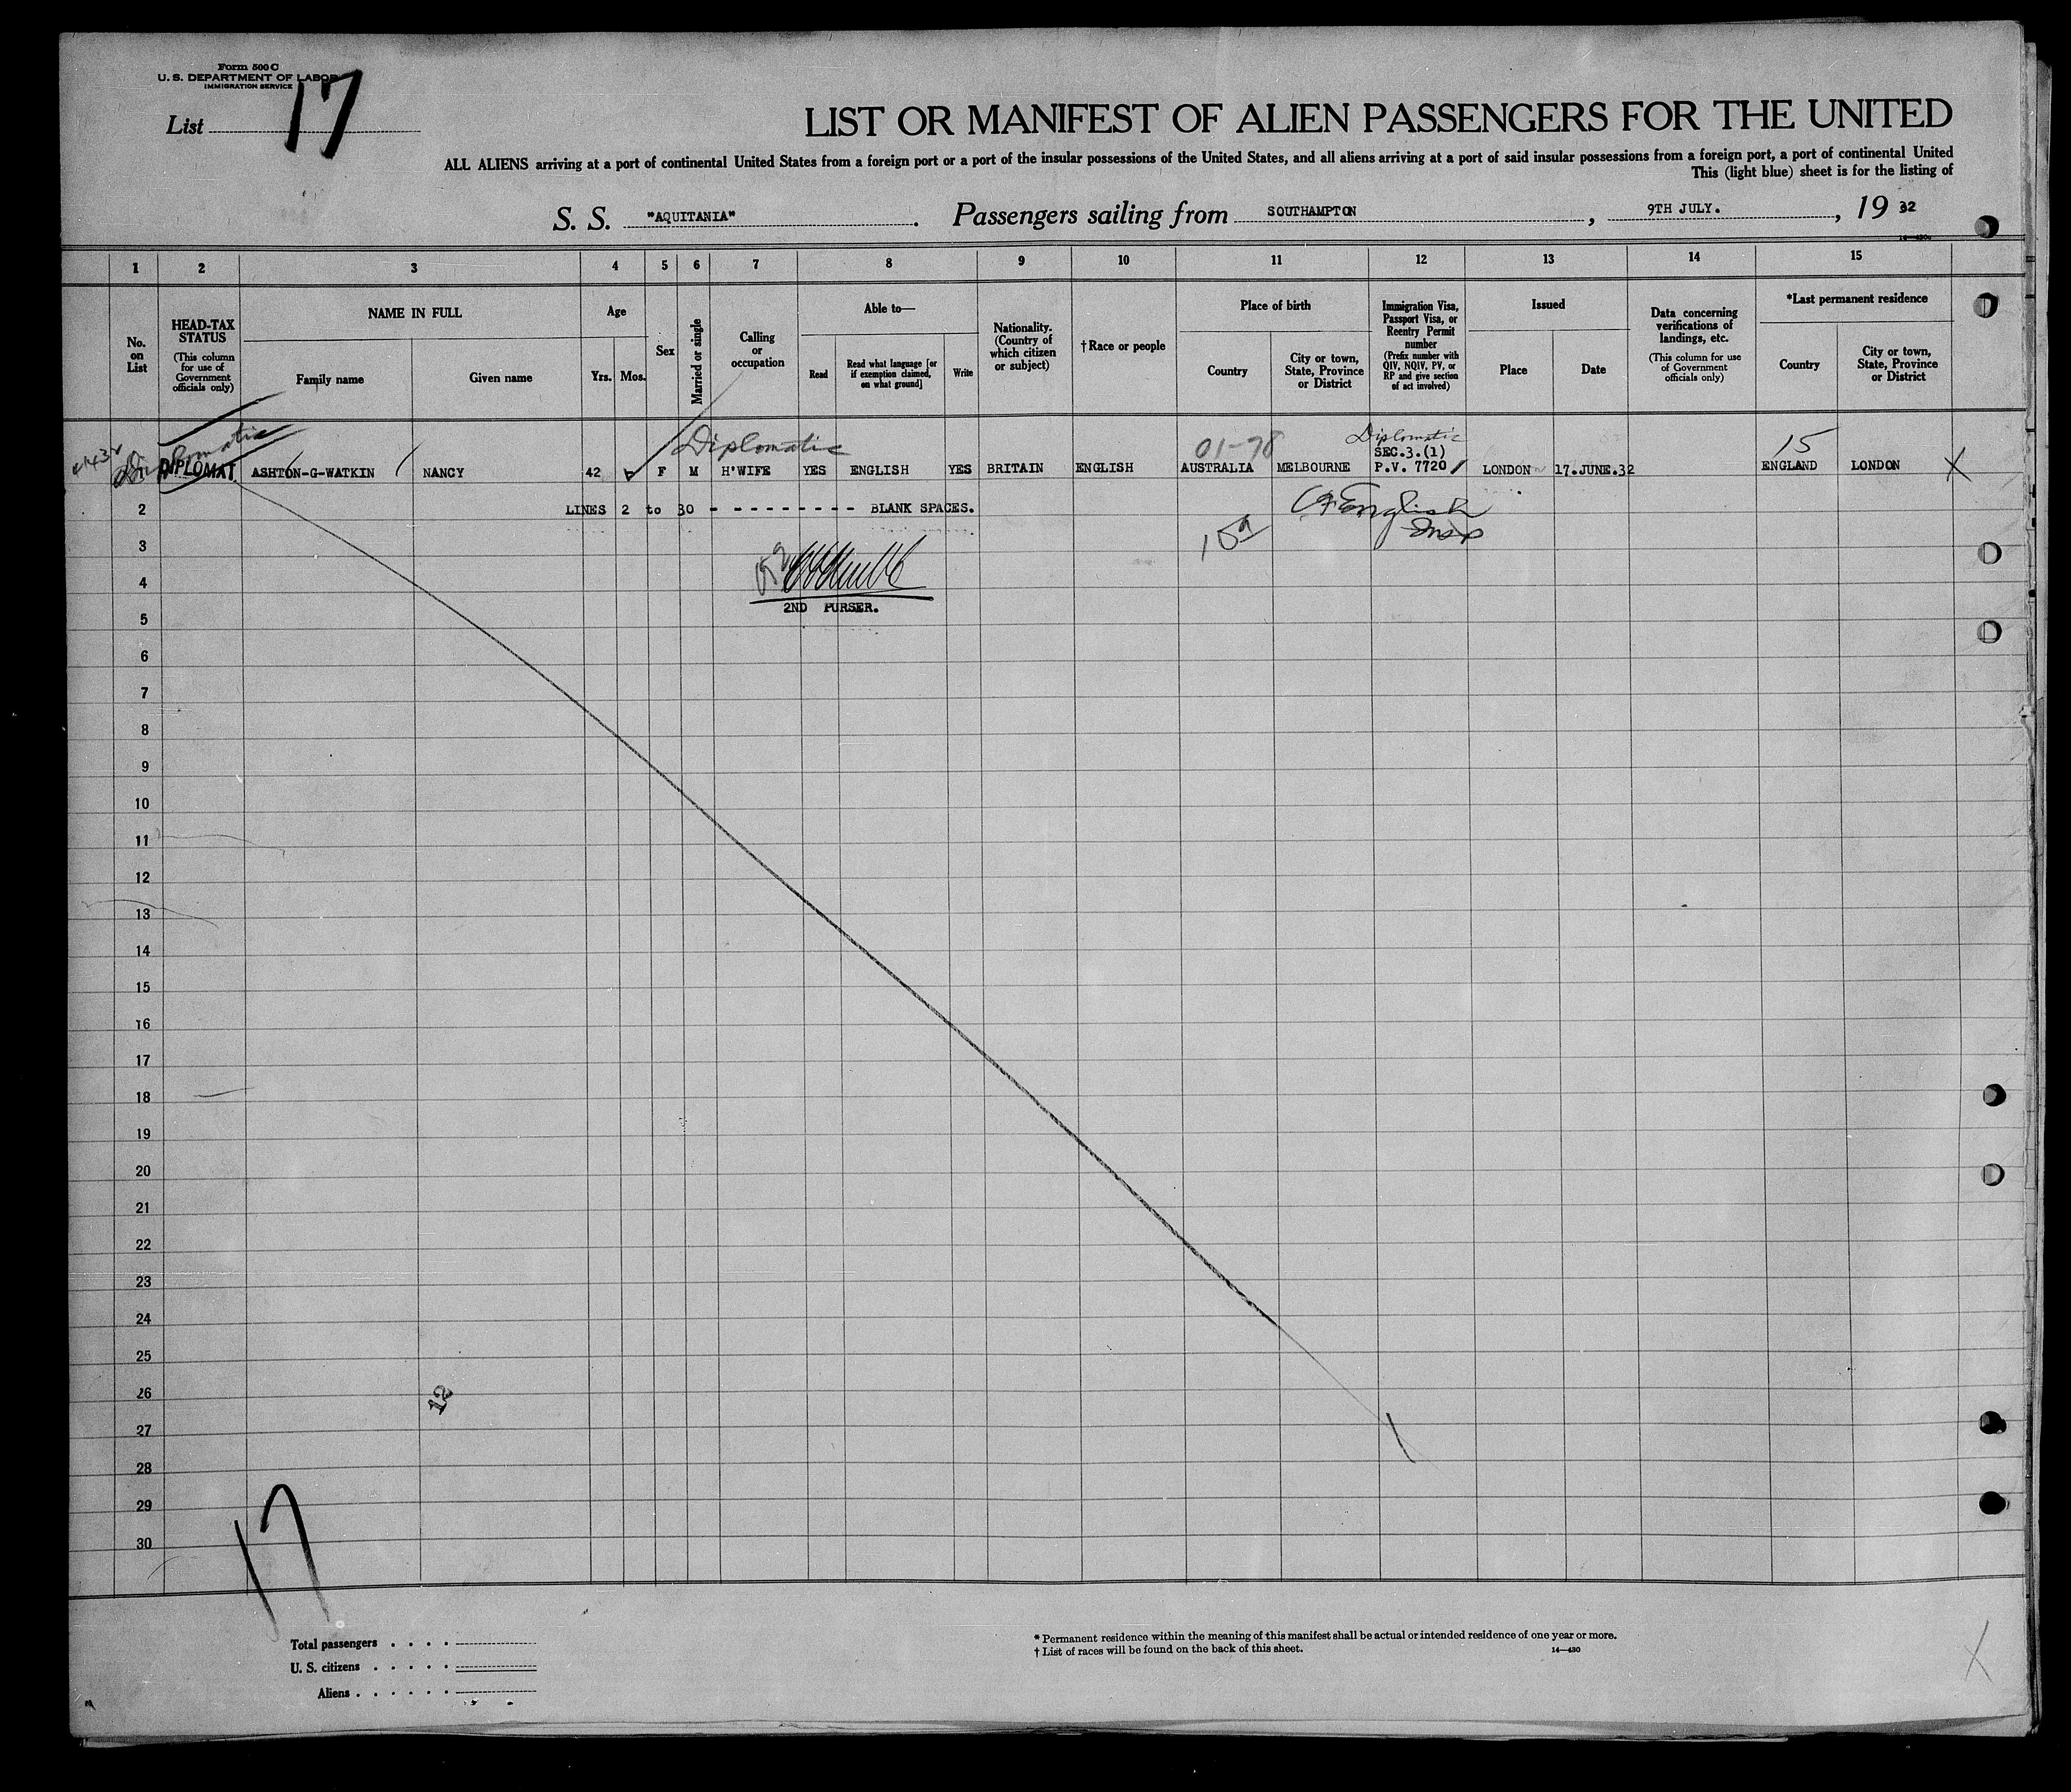 Form 500 C
U. S. DEPARTMENT OF LABOR
IMMIGRATION SERVICE
List 17
LIST OR MANIFEST OF ALIEN PASSENGERS FOR THE UNITED
ALL ALIENS arriving at a port of continental United States from a foreign port or a port of the insular possessions of the United States, and all aliens arriving at a port of said insular possessions from a foreign port, a port of continental United
This (light blue) sheet is for the listing of
S. S. "AQUITANIA". Passengers sailing from SOUTHAMPTON, 9TH JULY., 19 32
1 2 3 4 5 6 7 8 9 10 11 12 13 14 15
No. on List
HEAD-TAX STATUS
(This column for use of Government officials only)
NAME IN FULL
Family name
Given name
Age
Yrs. Mos.
Sex
Married or single
Calling or occupation
Able to—
Read
Read what language [or if exemption claimed, on what ground]
Write
Nationality. (Country of which citizen or subject)
†Race or people
Place of birth
Country
City or town, State, Province or District
Immigration Visa, Passport Visa, or Reentry Permit number
(Prefix number with QIV, NQIV, PV, or RP and give section of act involved)
Issued
Place
Date
Data concerning verifications of landings, etc.
(This column for use of Government officials only)
*Last permanent residence
Country
City or town, State, Province or District
Diplomatic
Diplomatic
01-78
Diplomatic
15
SEC.3.(1)
DIPLOMAT ASHTON-G-WATKIN NANCY 42 F M H'WIFE YES ENGLISH YES BRITAIN ENGLISH AUSTRALIA MELBOURNE P.V. 7720 LONDON 17.JUNE.32 ENGLAND LONDON X
2 LINES 2 to 30 - - - - - - - - - - BLANK SPACES.
English
Insp
3
4
2ND PURSER.
5
6
7
8
9
10
11
12
13
14
15
16
17
18
19
20
21
22
23
24
25
26
12
27
28
29
30
17
Total passengers . . . .
U. S. citizens . . . . .
Aliens . . . . . .
* Permanent residence within the meaning of this manifest shall be actual or intended residence of one year or more.
† List of races will be found on the back of this sheet. 14—430